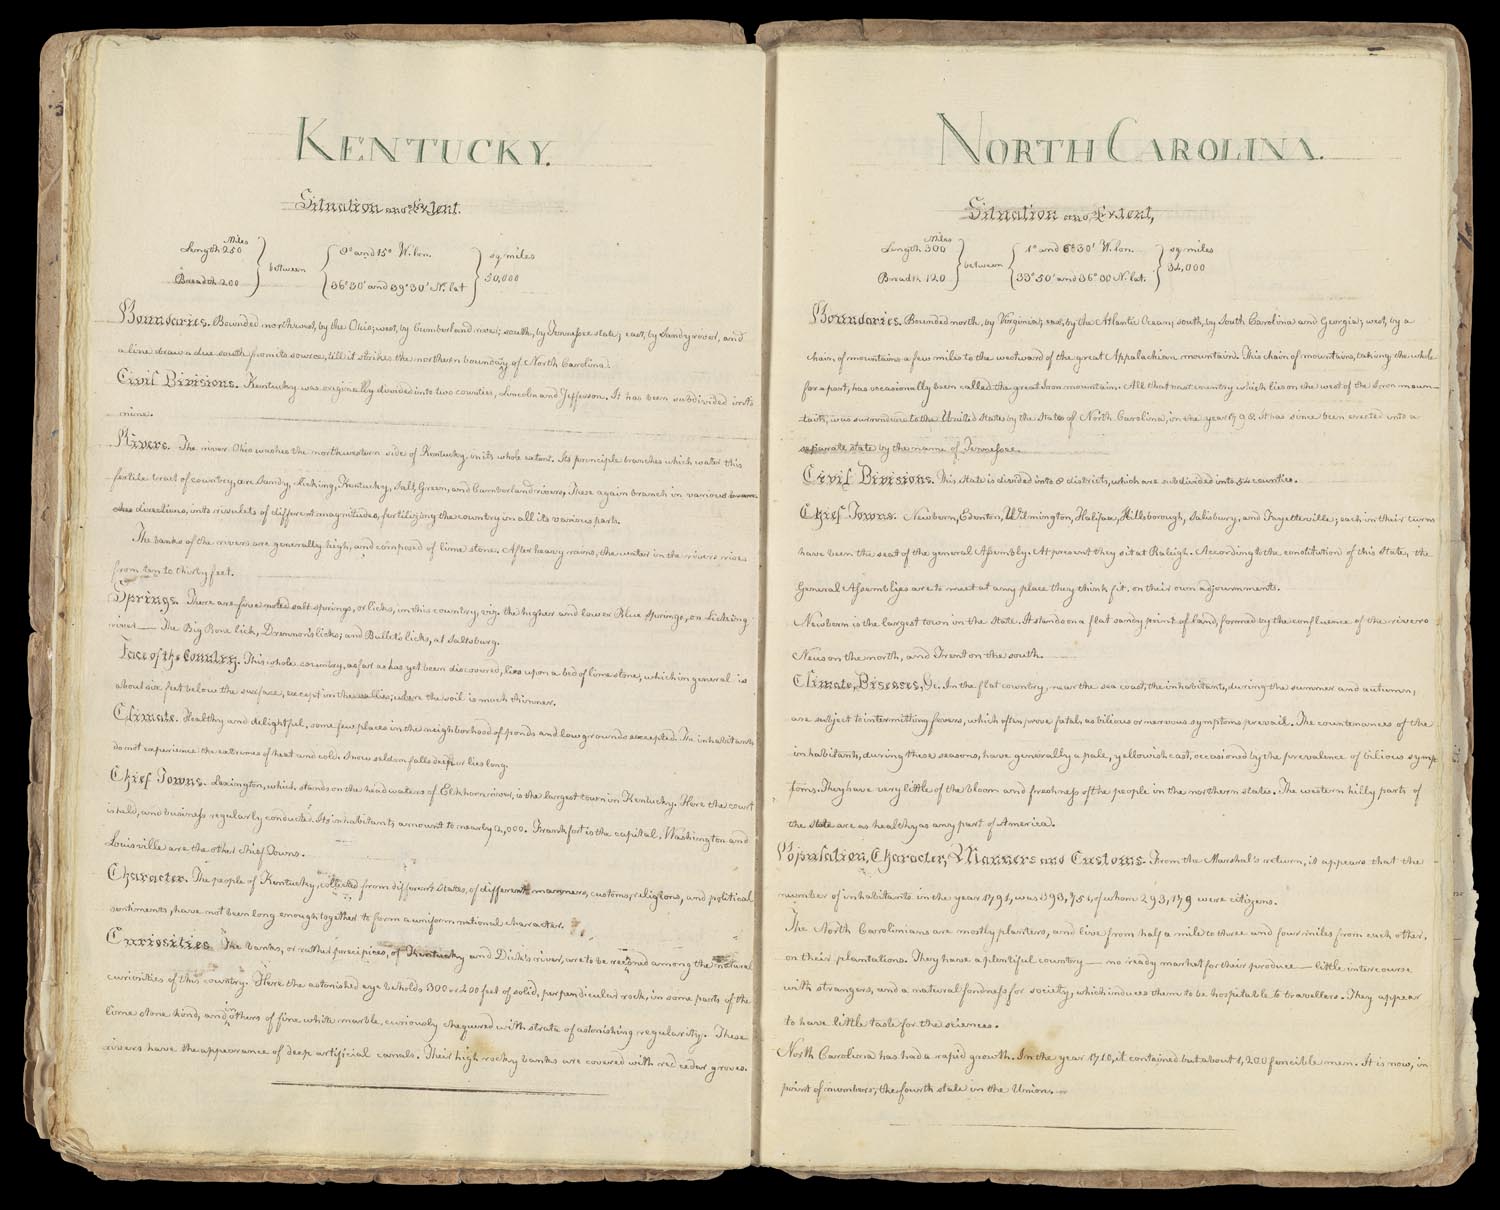 KENTUCKY.
Situation and Extent.
Miles
Length 250
Breadth 200
between
8° and 15° W. lon.
36° 30' and 39° 30' N. lat
sq miles
50,000
Boundaries. Bounded northwest, by the Ohio; west, by Cumberland river; south, by Tennessee state; east, by Sandy river, and
a line drawn due south from its source, till it strikes the northern boundary of North Carolina.
Civil Divisions. Kentucky was originally divided into two counties, Lincoln and Jefferson. It has been subdivided into
nine.
Rivers. The river Ohio washes the northwestern side of Kentucky in its whole extent. Its principle branches which water this
fertile tract of country, are Sandy, Licking, Kentucky, Salt, Green, and Cumberland rivers, These again branch in various
directions, into rivulets of different magnitudes, fertilizing the country in all its various parts.
The banks of the rivers are generally high, and composed of lime stone. After heavy rains, the water in the rivers rise
from ten to thirty feet.
Springs. There are five noted salt springs, or licks, in this country, viz. the higher and lower Blue Springs, on Licking
river — The Big Bone lick, Drennon's licks; and Bullet's licks, at Saltsburg.
Face of the Country. This whole country, as far as has yet been discovered, lies upon a bed of lime stone, which in general is
about six feet below the surface, except in the vallies, where the soil is much thinner.
Climate. Healthy and delightful, some few places in the neighborhood of ponds and low grounds excepted. The inhabitants
do not experience the extremes of heat and cold. Snow seldom falls deep, or lies long.
Chief Towns. Lexington, which stands on the head waters of Elkhorn river, is the largest town in Kentucky. Here the court
is held, and business regularly conducted. Its inhabitants amount to nearly 2,000. Frankfort is the capital. Washington and
Louisville are the other chief Towns.
Character. The people of Kentucky, collected from different States, of different manners, customs, religions, and political
sentiments, have not been long enough together to form a uniform national character.
Curiosities The banks, or rather precipices, of Kentucky and Dick's river, are to be reckoned among the natural
curiosities of this country. Here the astonished eye beholds 300 or 400 feet of solid, perpendicular rock, in some parts of the
lime stone kind, and in others of fine white marble, curiously chequered with strata of astonishing regularity. These
rivers have the appearance of deep artificial canals. Their high rocky banks are covered with red cedar groves.
NORTH CAROLINA.
Situation and Extent,
Miles
Length 300
Breadth 120
between
1° and 6° 30' W. lon.
33° 50' and 36° 30 N. lat.
sq miles
34,000
Boundaries. Bounded north, by Virginia; east, by the Atlantic Ocean; south, by South Carolina and Georgia; west, by a
chain, of mountains a few miles to the westward of the great Appalachian mountain. This chain of mountains, taking the whole
for a part, has occasionally been called the great Iron mountain. All that vast country which lies on the west of the Iron moun-
tain, was surrendered to the United States by the State of North Carolina, in the year 1795. It has since been erected into a
separate state by the name of Tennessee.
Civil Divisions. This State is divided into 8 districts, which are subdivided into 54 counties.
Chief Towns. Newbern, Edenton, Wilmington, Halifax, Hillsborough, Salisbury, and Fayetteville; each in their turns
have been the seat of the general Assembly. At present they sit at Raleigh. According to the constitution of this State, the
General Assemblies are to meet at any place they think fit, on their own adjournments.
Newbern is the largest town in the State. It stands on a flat sandy point of land, formed by the confluence of the rivers
Neus on the north, and Trent on the south.
Climate, Diseases, &c. In the flat country, near the sea coast, the inhabitants, during the summer and autumn,
are subject to intermitting fevers, which often prove fatal, as bilious or nervous symptoms prevail. The countenances of the
inhabitants, during these seasons, have generally a pale, yellowish cast, occasioned by the prevalence of bilious symp
toms. They have very little of the bloom and freshness of the people in the northern states. The western hilly parts of
the state are as healthy as any part of America.
Population, Character, Manners and Customs. From the Marshal's return, it appears that the
number of inhabitants in the year 1791, was 393,751, of whom 293,179 were citizens.
The North Carolinians are mostly planters, and live from half a mile to three and four miles from each other,
on their plantations. They have a plentiful country — no ready market for their produce — little intercourse
with strangers, and a natural fondness for society, which induces them to be hospitable to travellers. They appear
to have little taste for the sciences.
North Carolina has had a rapid growth. In the year 1710, it contained but about 1,200 fencible men. It is now, in
point of numbers, the fourth state in the Union.